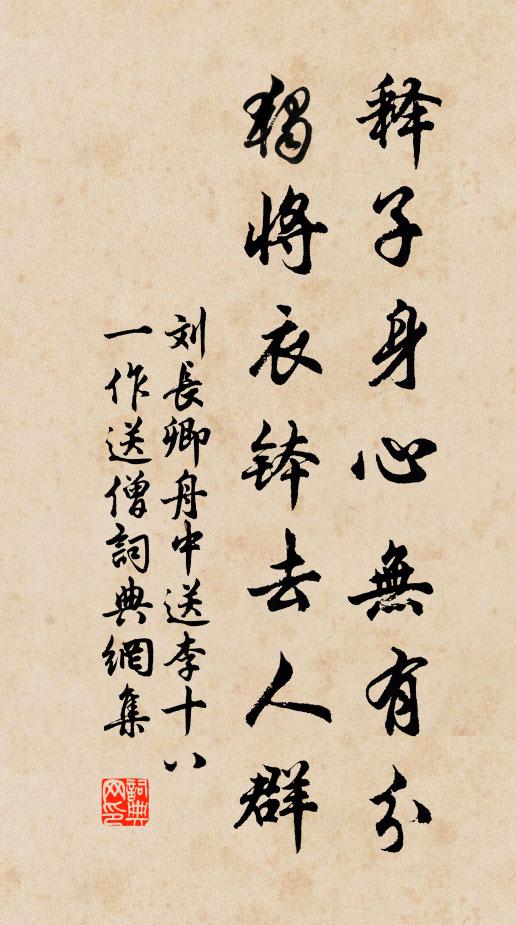 释子身心無有分
獨將衣鉢去人群
刘長卿舟中送李十八
一作送僧詞典網集
詞典网印